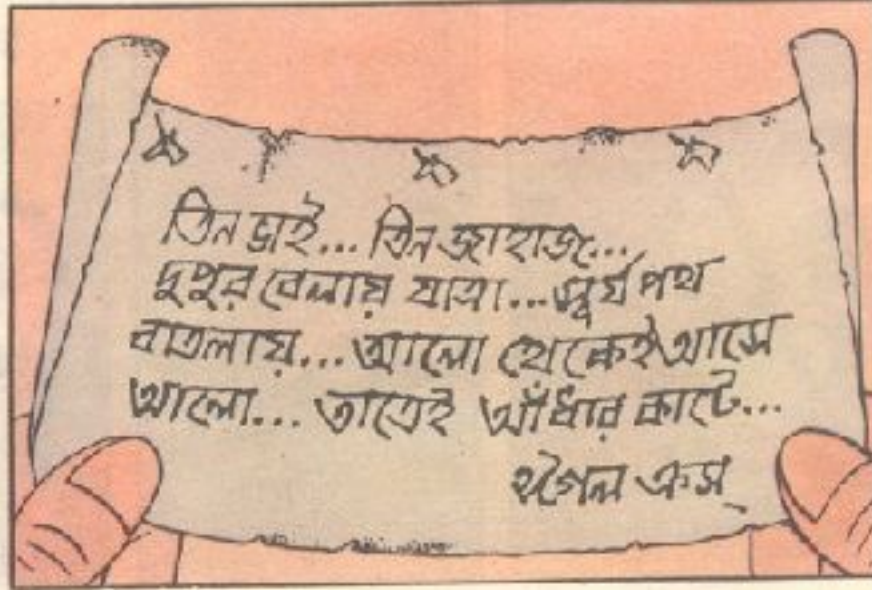 তিন ভাই... তিন জাহাজ...
দুপুর বেলায় যাত্রা... সূর্য পথ
বাতলায়... আলো থেকেই আসে
আলো... তাতেই আঁধার কাটে...
ঈগল ক্রস